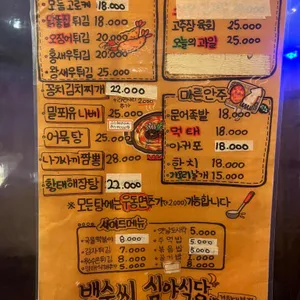 모듬고로케 18.000
닭똥집튀김 18.000
오징어튀김 20.000
왕새우튀김 25.000
고추장 육회 25.000
오늘의 과일 25.000
꽁치김치찌개 22.000
밀푀유나베 25.000
어묵탕 25.000
나가사끼짬뽕 28.000
황태해장탕 22.000
마른안주
문어족발 18.000
먹태 18.000
아귀포 18.000
한치 18.000
15.000
※ 모든탕에는 우동면 가능합니다
사이드메뉴
국물떡볶이 8.000
감자튀김 7.000
8.000
옛날도시락 5.000
주먹밥 5.000
5.000
백수씨 심야식당